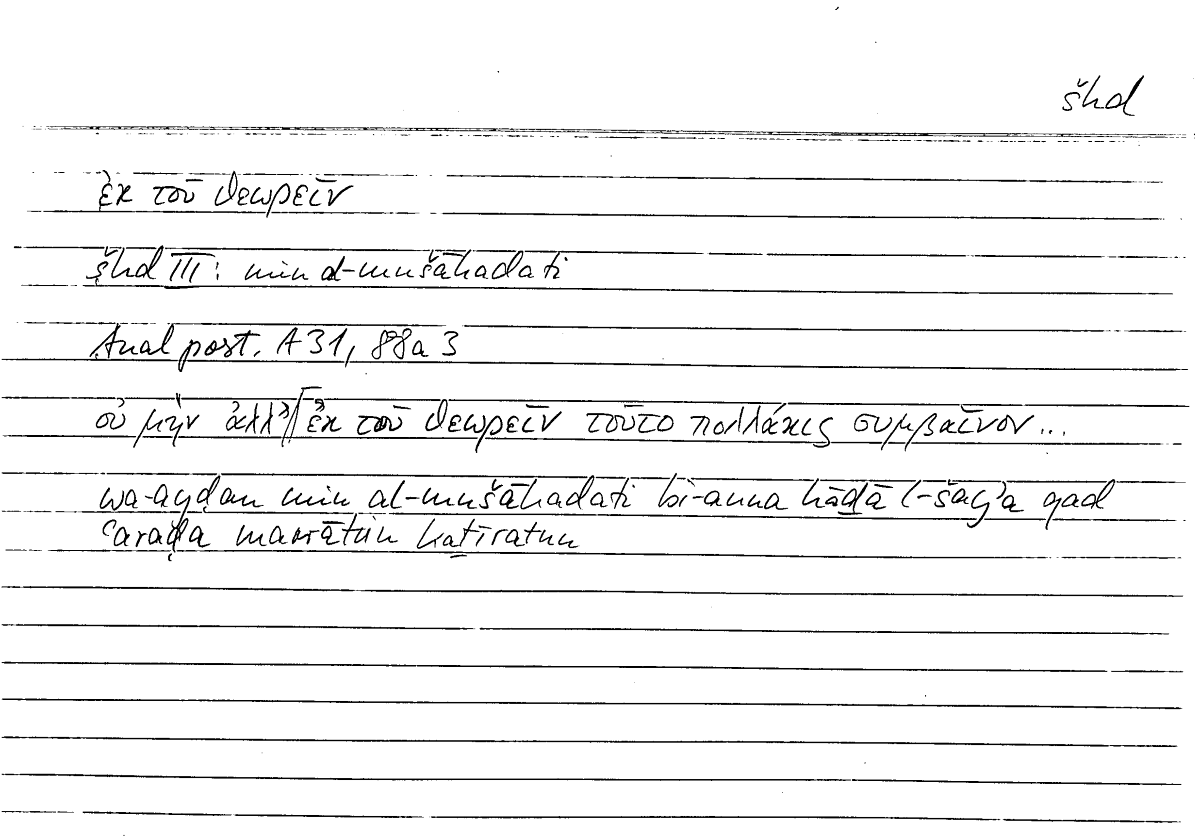 šhd
ἐκ τοῦ θεωρεῖν
šhd III: min al-mušāhadati
Anal post. A 31, 88a 3
οὐ μὴν ἀλλ’ // ἐκ τοῦ θεωρεῖν τοῦτο πολλάκις συμβαῖνον...
wa-ayḍan min al-mušāhadati bi-anna hāḏā l-šayʾa qad
ʿaraḍa marrātin kaṯīratun